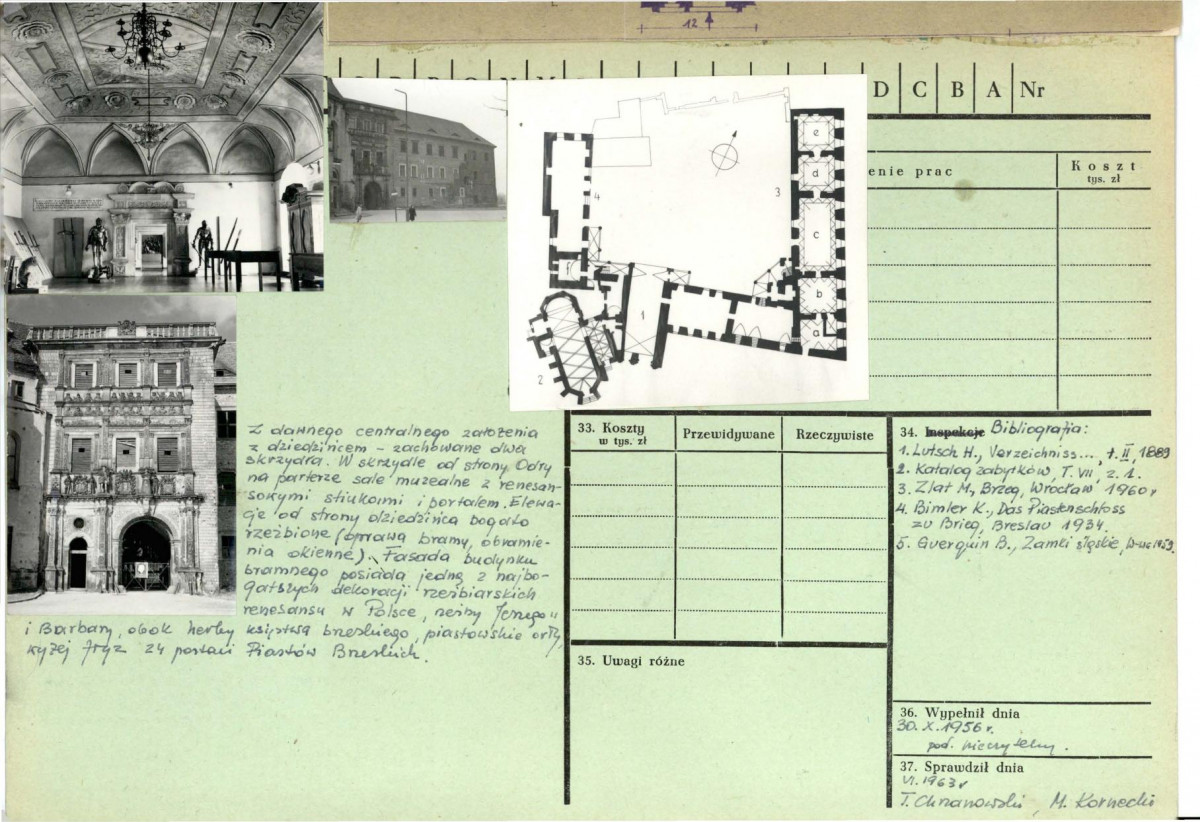 12
D C B A Nr
enie prac
Koszt
tys. zł
e
d
3
4
c
b
a
1
2
Z dawnego centralnego założenia
z dziedzińcem - zachowane dwa
skrzydła. W skrzydle od strony Odry
na parterze sale muzealne z renesan-
sowymi stiukami i portalem. Elewa-
cje od strony dziedzińca bogato
rzeźbione (oprawa bramy, obramie-
nia okienne). Fasada budynku
bramnego posiada jedną z najbo-
gatszych dekoracji rzeźbiarskich
renesansu w Polsce, rzeźby Jerzego II
i Barbary, obok herby księstwa brzeskiego, piastowskie orły,
wyżej fryz 24 postaci Piastów Brzeskich.
33. Koszty
w tys. zł
Przewidywane
Rzeczywiste
34. Inspekcje Bibliografia:
1. Lutsch H., Verzeichniss..., t. II, 1889
2. Katalog zabytków, T. VII, z. 1.
3. Zlat M., Brzeg, Wrocław 1960 r
4. Bimler K., Das Piastenschloss
zu Brieg, Breslau 1934.
5. Guerquin B., Zamki śląskie,
35. Uwagi różne
36. Wypełnił dnia
30. X. 1956 r.
pod. nieczytelny.
37. Sprawdził dnia
VI. 1963 r
T. Chrzanowski, M. Kornecki